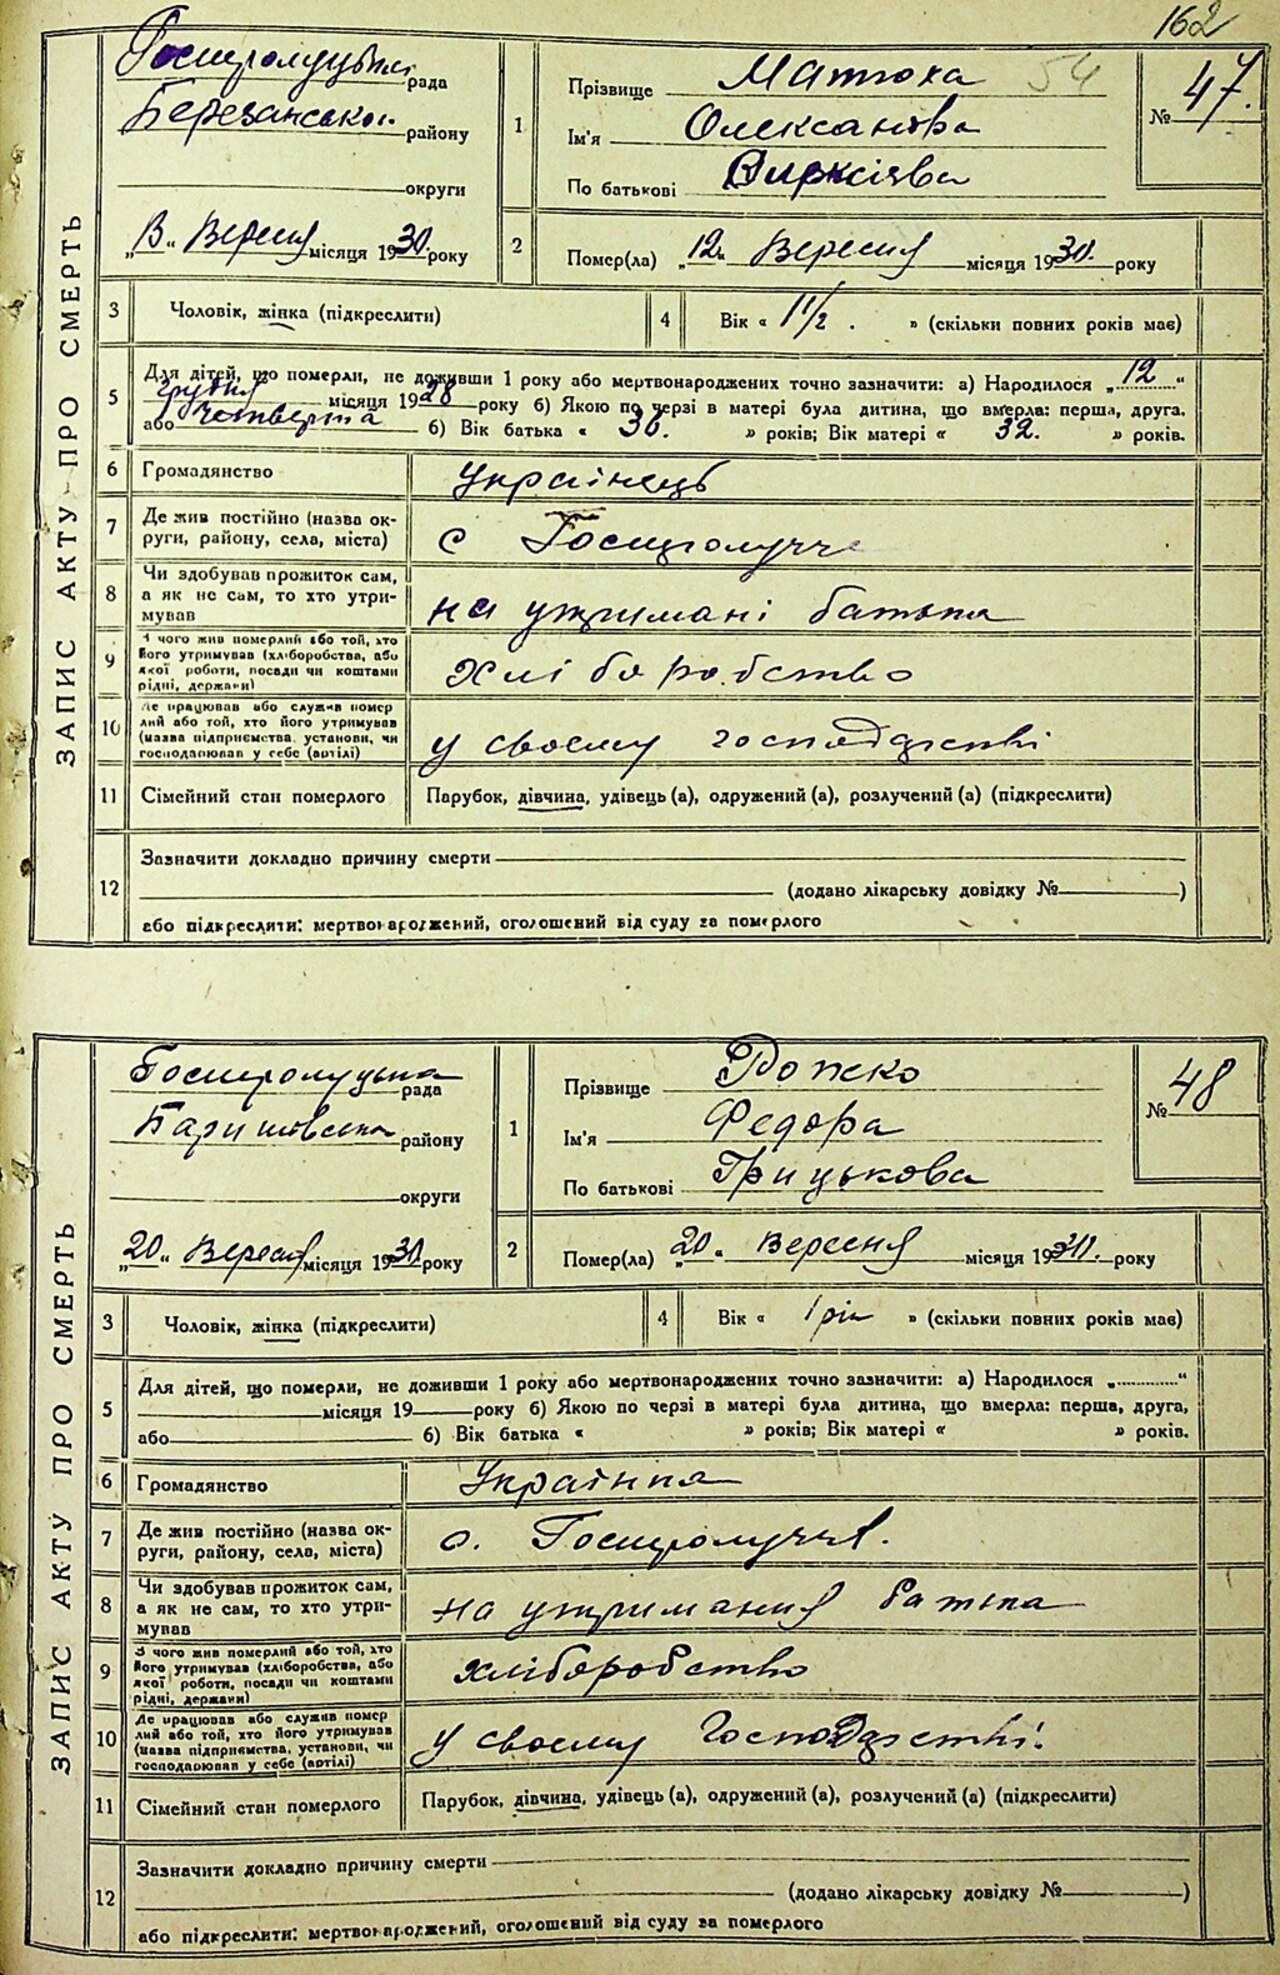 162
ЗАПИС АКТУ ПРО СМЕРТЬ
Гостролуцької рада
Березанської району
округи
„13“ Вересня місяця 1930. року
1
Прізвище Матюха 54
Ім'я Олександра
По батькові
№ 47.
2
Помер(ла) „12“ Вересня місяця 1930. року
3
Чоловік, жінка (підкреслити)
4
Вік « 1 1/2. » (скільки повних років має)
5
Для дітей, що померли, не доживши 1 року або мертвонароджених точно зазначити: а) Народилося „12“
грудня місяця 1928 року б) Якою по черзі в матері була дитина, що вмерла: перша, друга.
або четверта б) Вік батька « 30. » років; Вік матері « 32. » років.
6
Громадянство
Українець
7
Де жив постійно (назва ок-
руги, району, села, міста)
с Гостролуччє
8
Чи здобував прожиток сам,
а як не сам, то хто утри-
мував
на утримані батька
9
З чого жив померлий або той, хто
його утримував (хліборобства, або
якої роботи, посади чи коштами
рідні, держави)
Хліборобство
10
Де працював або служив помер
лий або той, хто його утримував
(назва підприємства, установи, чи
господарював у себе (артілі)
у своєму господарстві
11
Сімейний стан померлого
Парубок, дівчина, удівець (а), одружений (а), розлучений (а) (підкреслити)
12
Зазначити докладно причину смерти
(додано лікарську довідку № )
або підкреслити: мертвонароджений, оголошений від суду за померлого
ЗАПИС АКТУ ПРО СМЕРТЬ
Гостролуцька рада
Баришівська району
округи
„20“ Вересня місяця 1930. року
1
Прізвище Рожко
Ім'я Федора
По батькові Грицькова
№ 48
2
Помер(ла) „20“ Вересня місяця 1930. року
3
Чоловік, жінка (підкреслити)
4
Вік « 1 рік » (скільки повних років має)
5
Для дітей, що померли, не доживши 1 року або мертвонароджених точно зазначити: а) Народилося „ “
місяця 19 року б) Якою по черзі в матері була дитина, що вмерла: перша, друга,
або б) Вік батька « » років; Вік матері « » років.
6
Громадянство
Українка
7
Де жив постійно (назва ок-
руги, району, села, міста)
с. Гостролуччє.
8
Чи здобував прожиток сам,
а як не сам, то хто утри-
мував
на утримання батька
9
З чого жив померлий або той, хто
його утримував (хліборобства, або
якої роботи, посади чи коштами
рідні, держави)
хліборобство
10
Де працював або служив помер
лий або той, хто його утримував
(назва підприємства, установи, чи
господарював у себе (артілі)
у своєму господарстві.
11
Сімейний стан померлого
Парубок, дівчина, удівець (а), одружений (а), розлучений (а) (підкреслити)
12
Зазначити докладно причину смерти
(додано лікарську довідку № )
або підкреслити: мертвонароджений, оголошений від суду за померлого